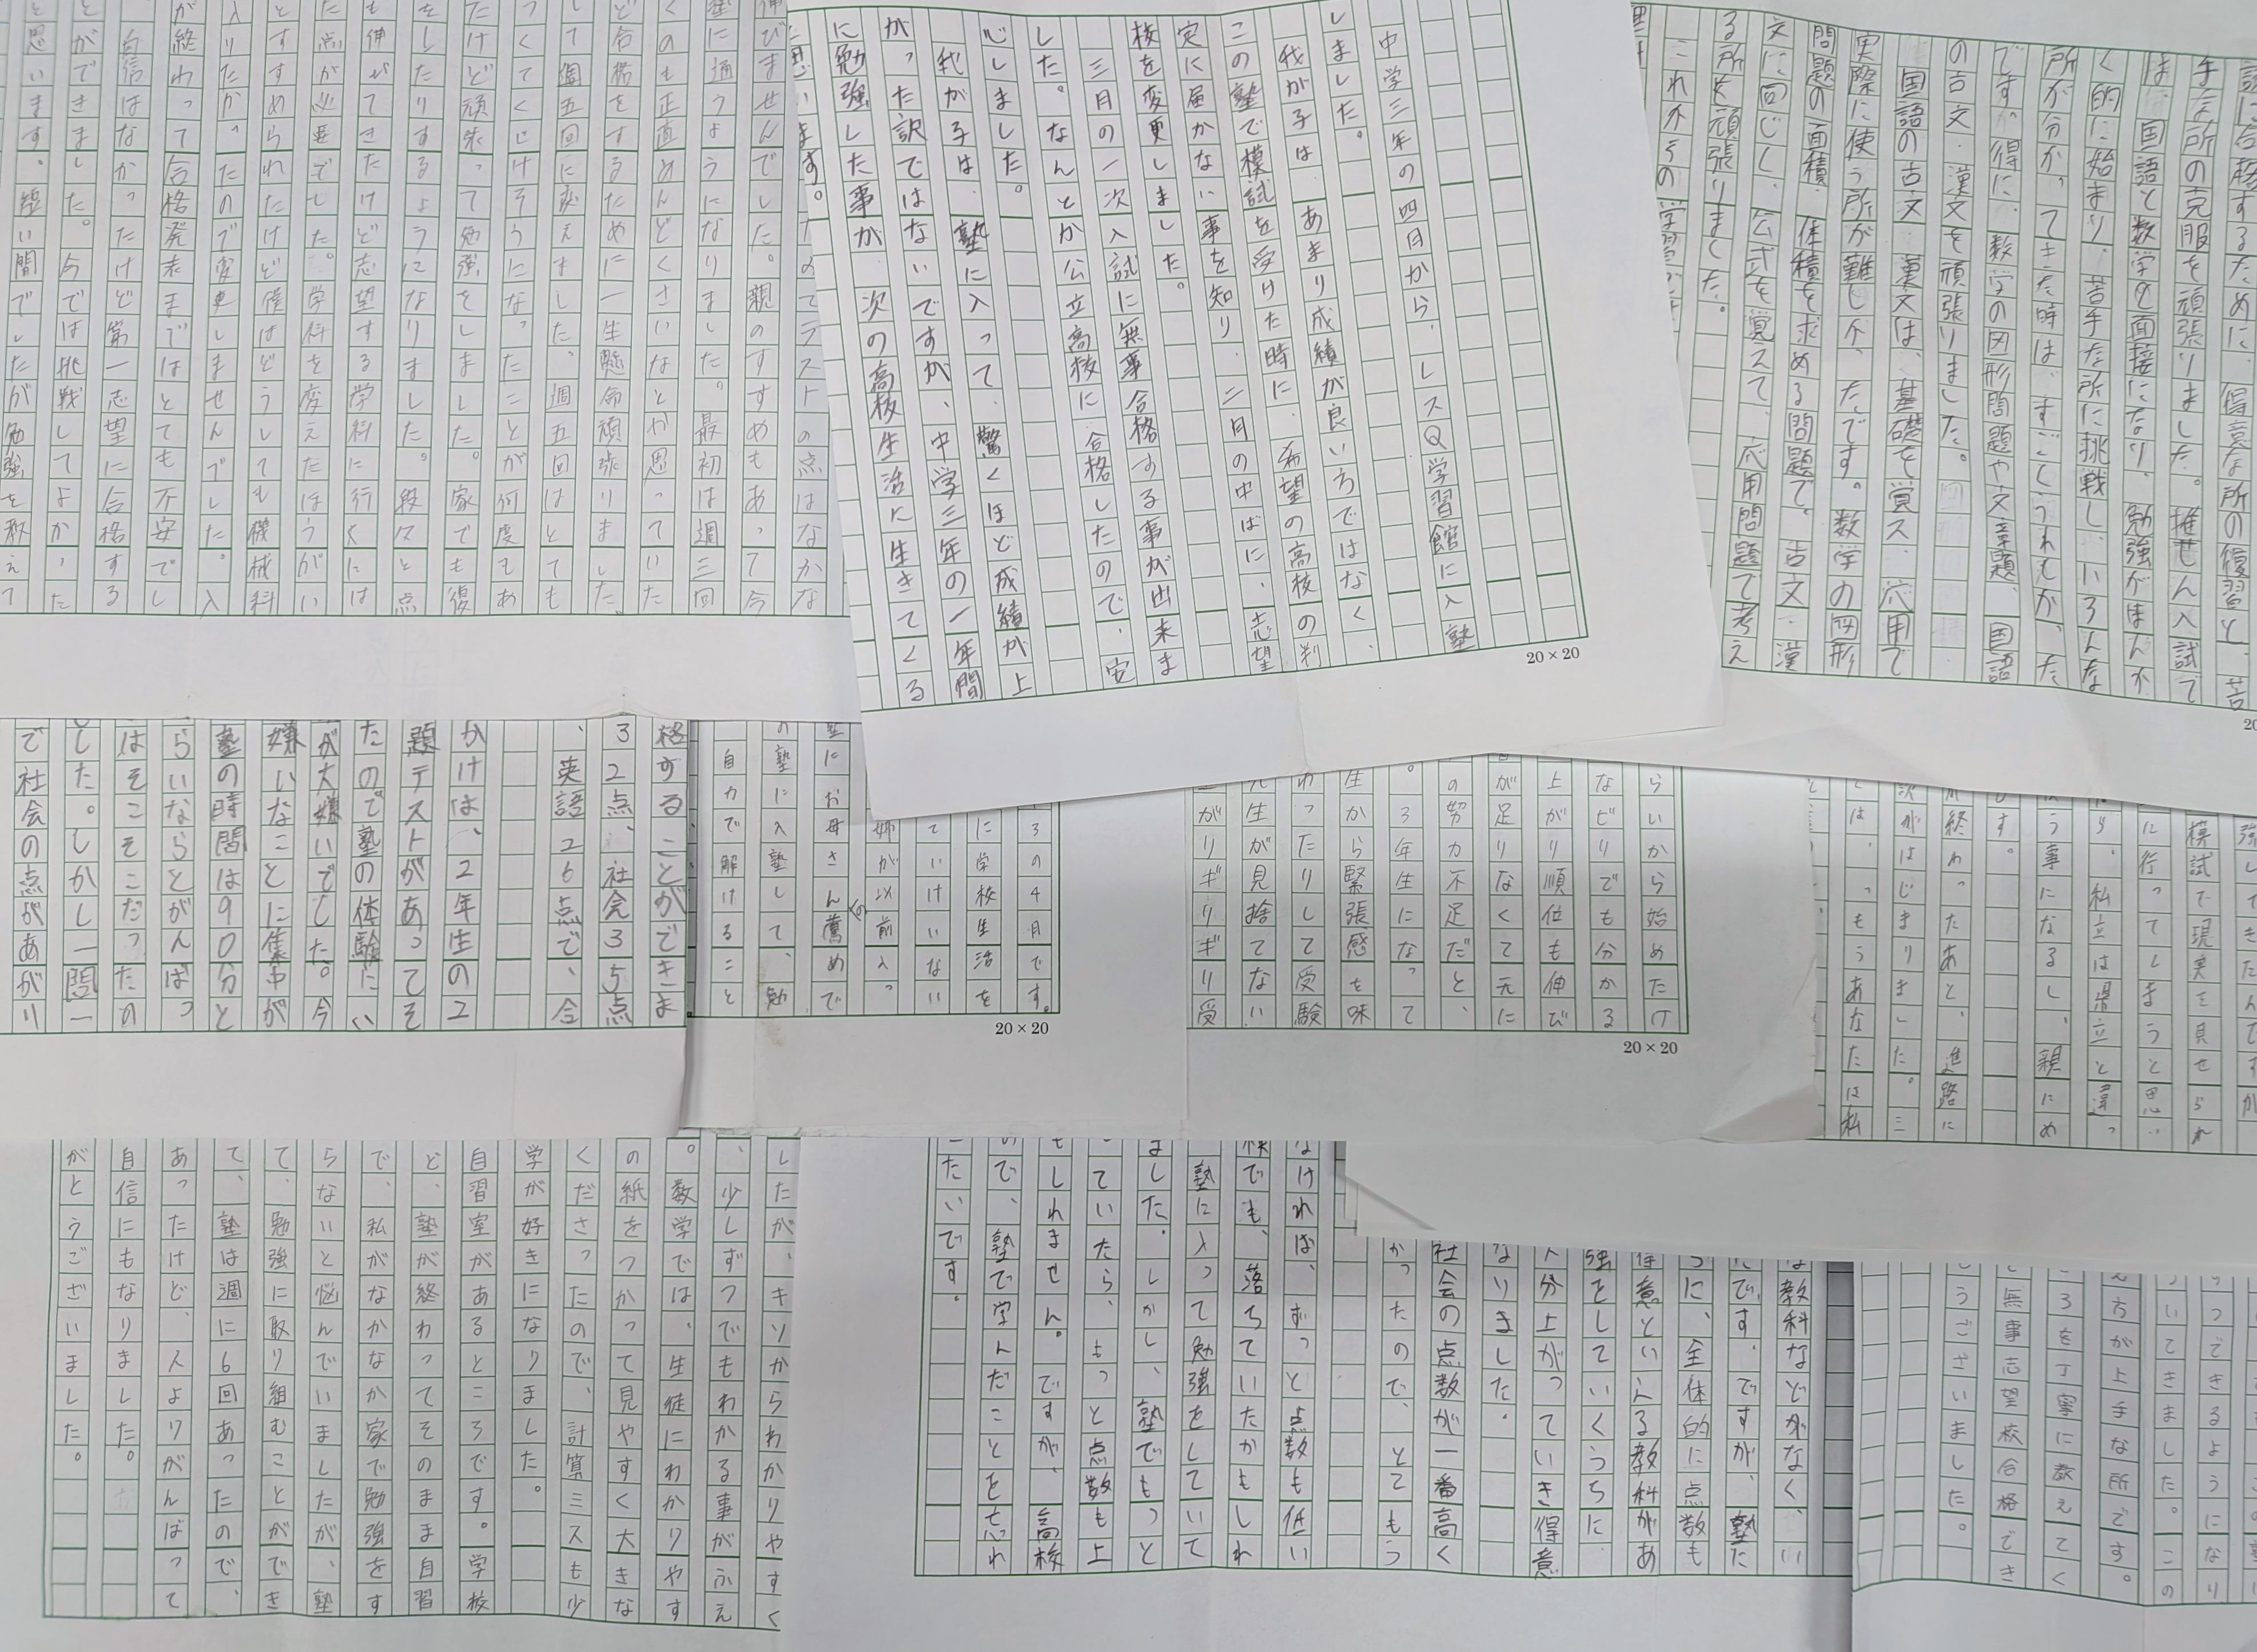 中学三年の四月から、レスQ学習館に入塾
しました。
我が子は、あまり成績が良いろではなく、
この塾で模試を受けた時に、希望の高校の判
定に届かない事を知り、二月の中ばに、志望
校を変更しました。
三月の一次入試に無事合格する事が出来ま
した。なんとか公立高校に合格したので、安
心しました。
我が子は、塾に入って、驚くほど成績が上
がった訳ではないですが、中学三年の一年間
に勉強した事が、次の高校生活に生きてくる
と思います。
伸びませんでした。親のすすめもあって今
塾に通うようになりました。最初は週三回
くのも正直めんどくさいなとか思っていた
ど合格をするために一生懸命頑張りました。
して週五回に変えました、週五回はとても
つくてくじけそうになったことが何度もあ
たけど頑張って勉強をしました。家でも復
をしたりするようになりました。段々と点
も伸びてきたけど志望する学科に行くには
点が必要でした。学科を変えたほうがいい
とすすめられたけど僕はどうしても機械科
入りたかったので変更しませんでした。入
が終わって合格発表まではとても不安でし
自信はなかったけど第一志望に合格する
がができました。今では挑戦してよかった
と思います。短い間でしたが勉強を教えて
試に合格するために、得意な所の復習と、苦
手な所の克服を頑張りました。推せん入試で
は、国語と数学と面接になり、勉強がほんか
く的に始まり、苦手な所に挑戦し、いろんな
所が分かってきた時は、すごくうれしかった
ですが、得に、数学の図形問題や文章題、国語
の古文・漢文を頑張りました。
国語の古文・漢文は、基礎を覚え、応用で
実際に使う所が難しかったです。数学の図形
問題の面積、体積を求める問題で、古文・漢
文に同じく、公式を覚えて、応用問題で考え
る所を頑張りました。
これからの学習
格することができま
32点、社会35点
、英語26点で、合
かけは、2年生の2
題テストがあってそ
たので塾の体験にい
が大嫌いでした。今
嫌いなことに集中が
塾の時間は90分と
らいならとがんばっ
はそこそこだったの
した。しかし一問一
で社会の点があがり
3の4月です。
に学校生活を
ていけいない
姉が以前入っ
塾にお母さんの薦めで
の塾に入塾して、勉
自力で解けること
らいから始めたけ
なビリでも分かる
上がり順位も伸び
が足りなくて元に
の努力不足だと、
。3年生になって
生から緊張感を味
わったりして受験
先生が見捨てない
がりギリギリ受
強してきたんですか
模試で現実を見せられ
に行ってしまうと思い
り、私立は県立と違っ
う事になるし、親にめ
す。
が終わったあと、進路に
次がはじまりました。三
とは、っもうあなたは私
したが、キソからわかりやすく
、少しずつでもわかる事がふえ
。数学では、生徒にわかりやす
の紙をつかって見やすく大きな
くださったので、計算ミスも少
学が好きになりました。
自習室があるところです。学校
と、塾が終わってそのまま自習
で、私がなかなか家で勉強をす
らないと悩んでいましたが、塾
て、勉強に取り組むことができ
て、塾は週に6回あったので、
あったけど、人よりがんばって
自信にもなりました。
がとうございました。
な教科などがなく、い
にです。ですが、塾た
らに、全体的に点数も
得意といえる教科があ
強をしていくうちに
人分上がっていき得意
なりました。
社会の点数が一番高く
かったので、とてもう
なければ、ずっと点数も低い
様でも、落ちていたかもしれ
塾に入って勉強をしていて
ました。しかし、塾でもっと
っていたら、もっと点数も上
もしれません。ですが、高校
ので、塾で学んだことを忘れ
したいです。
つできるようになり
ついてきました。この
え方が上手な所です。
ころを丁寧に教えてく
て無事志望校合格でき
とうございました。
20×20
20×20
20×20